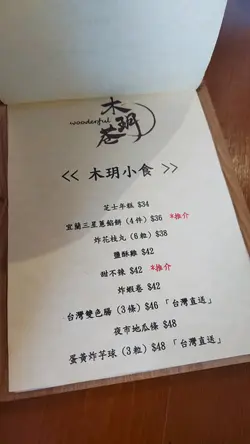 木玥巷
wooderful
<< 木玥小食 >>
芝士年糕 $34
宜蘭三星蔥餡餅 (4件) $36 *推介
炸花枝丸 (6粒) $38
鹽酥雞 $42
甜不辣 $42 *推介
炸蝦卷 $42
台灣雙色腸 (3條) $46 「台灣直送」
夜市地瓜條 $48
蛋黃炸芋球 (3粒) $48 「台灣直送」